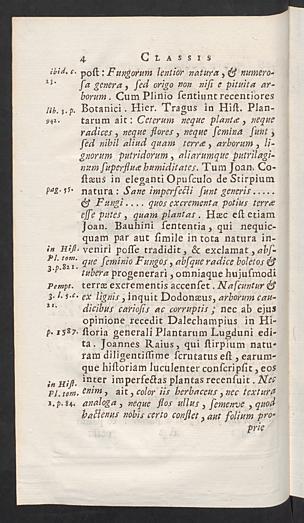 4 CLASSIS
ibid. c. 13.
post: Fungorum lentior natura, & numero-
sa genera, sed origo non nisi e pituita ar-
borum. Cum Plinio sentiunt recentiores
lib. 3. p. 942.
Botanici. Hier. Tragus in Hist. Plan-
tarum ait: Ceterum neque plantæ, neque
radices, neque flores, neque semina sunt,
sed nibil aliud quam terræ, arborum, li-
gnorum putridorum, aliarumque putrilagi-
num superfluæ humiditates. Tum Joan. Co-
stæus in eleganti Opusculo de Stirpium
pag. 55.
natura: Sane imperfecti sunt generis.....
& Fungi.... quos excrementa potius terræ
esse putes, quam plantas. Hæc est etiam
Joan. Bauhini sententia, qui nequic-
quam par aut simile in tota natura in-
in Hist. Pl. tom. 3. p. 821.
veniri posse tradidit, & exclamat, abs-
que seminio Fungos, absque radice boletos &
tubera progenerari, omniaque hujusmodi
Pempt. 3. l. 5. c. 21.
terræ excrementis accenset. Nascuntur &
ex lignis, inquit Dodonæus, arborum cau-
dicibus cariosis ac corruptis; nec ab ejus
opinione recedit Dalechampius in Hi-
p. 1587.
storia generali Plantarum Lugduni edi-
ta. Joannes Raius, qui stirpium natu-
ram diligentissime scrutatus est, earum-
que historiam luculenter conscripsit, eos
inter imperfectas plantas recensuit. Nec
in Hist. Pl. tom. 1. p. 84.
enim, ait, color iis herbaceus, nec textura
analoga, neque flos ullus, semenve, quod
hactenus nobis certo constet, aut folium pro-
prie